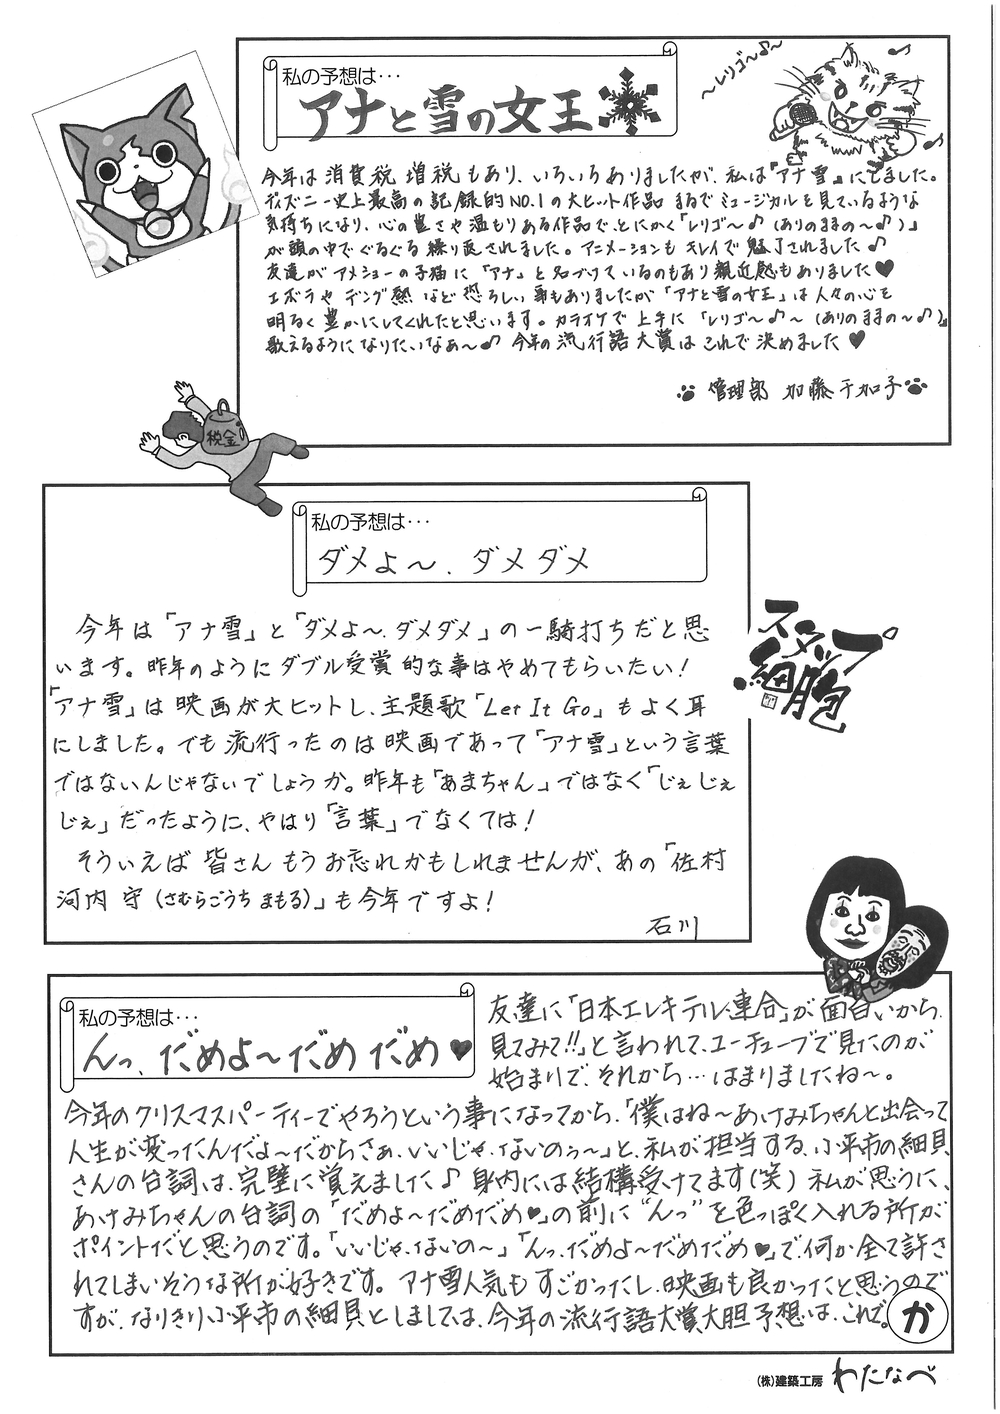 私の予想は…
アナと雪の女王
～レリゴ～♪～
今年は消費税増税もあり、いろいろありましたが、私は『アナ雪』にしました。
ディズニー史上最高の記録的NO.1の大ヒット作品 まるでミュージカルを見ているような
気持ちになり、心の豊さや温もりある作品で、とにかく「レリゴ～♪(ありのままの～♪)」
が頭の中でぐるぐる繰り返されました。アニメーションもキレイで魅了されました♪
友達がアメショーの子猫に「アナ」と名づけているのもあり親近感もありました♥
エボラやデング熱など恐ろしい事もありましたが「アナと雪の女王」は人々の心を
明るく豊かにしてくれたと思います。カラオケで上手に「レリゴ～♪～(ありのままの～♪)」
歌えるようになりたいなぁ～♪ 今年の流行語大賞はこれで決めました♥
管理部 加藤千加子
税金
私の予想は…
ダメよ～、ダメダメ
今年は「アナ雪」と「ダメよ～、ダメダメ」の一騎打ちだと思
います。昨年のようにダブル受賞的な事はやめてもらいたい!
「アナ雪」は映画が大ヒットし、主題歌「Let It Go」もよく耳
にしました。でも流行ったのは映画であって「アナ雪」という言葉
ではないんじゃないでしょうか。昨年も「あまちゃん」ではなく「じぇじぇ
じぇ」だったように、やはり「言葉」でなくては!
そういえば皆さんもうお忘れかもしれませんが、あの「佐村
河内 守(さむらごうち まもる)」も今年ですよ!
石川
スタップ
細胞
私の予想は…
んっ、だめよ～だめだめ♥
友達に「日本エレキテル連合」が面白いから、
見てみて!!」と言われて、ユーチューブで見たのが
始まりで、それから…はまりましたね～。
今年のクリスマスパーティーでやろうという事になってから、「僕はね～あけみちゃんと出会って
人生が変ったんだよ～だからさぁ、いいじゃ、ないのぅ～」と、私が担当する、小平市の細貝
さんの台詞は、完璧に覚えました♪ 身内には結構受けてます(笑) 私が思うに、
あけみちゃんの台詞の「だめよ～だめだめ♥」の前に“んっ”を色っぽく入れる所が
ポイントだと思うのです。「いいじゃ、ないの～」「んっ、だめよ～だめだめ♥」で、何か全て許さ
れてしまいそうな所が好きです。 アナ雪人気もすごかったし、映画も良かったと思うので
すが、なりきり小平市の細貝としましては、今年の流行語大賞大胆予想は、これで。
か
(株)建築工房 わたなべ